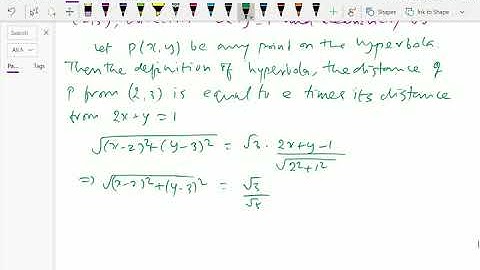 Shapes
Ink to Shape
Search
All A
Pa...
let P(x,y) be any point on the hyperbola.
Then the definition of hyperbola, the distance of
P from (2,3) is equal to e times its distance
from 2x+y=1
√(x-2)²+(y-3)² = √3 · 2x+y-1 / √2²+1²
⇒ √(x-2)²+(y-3)² = √3 / √5